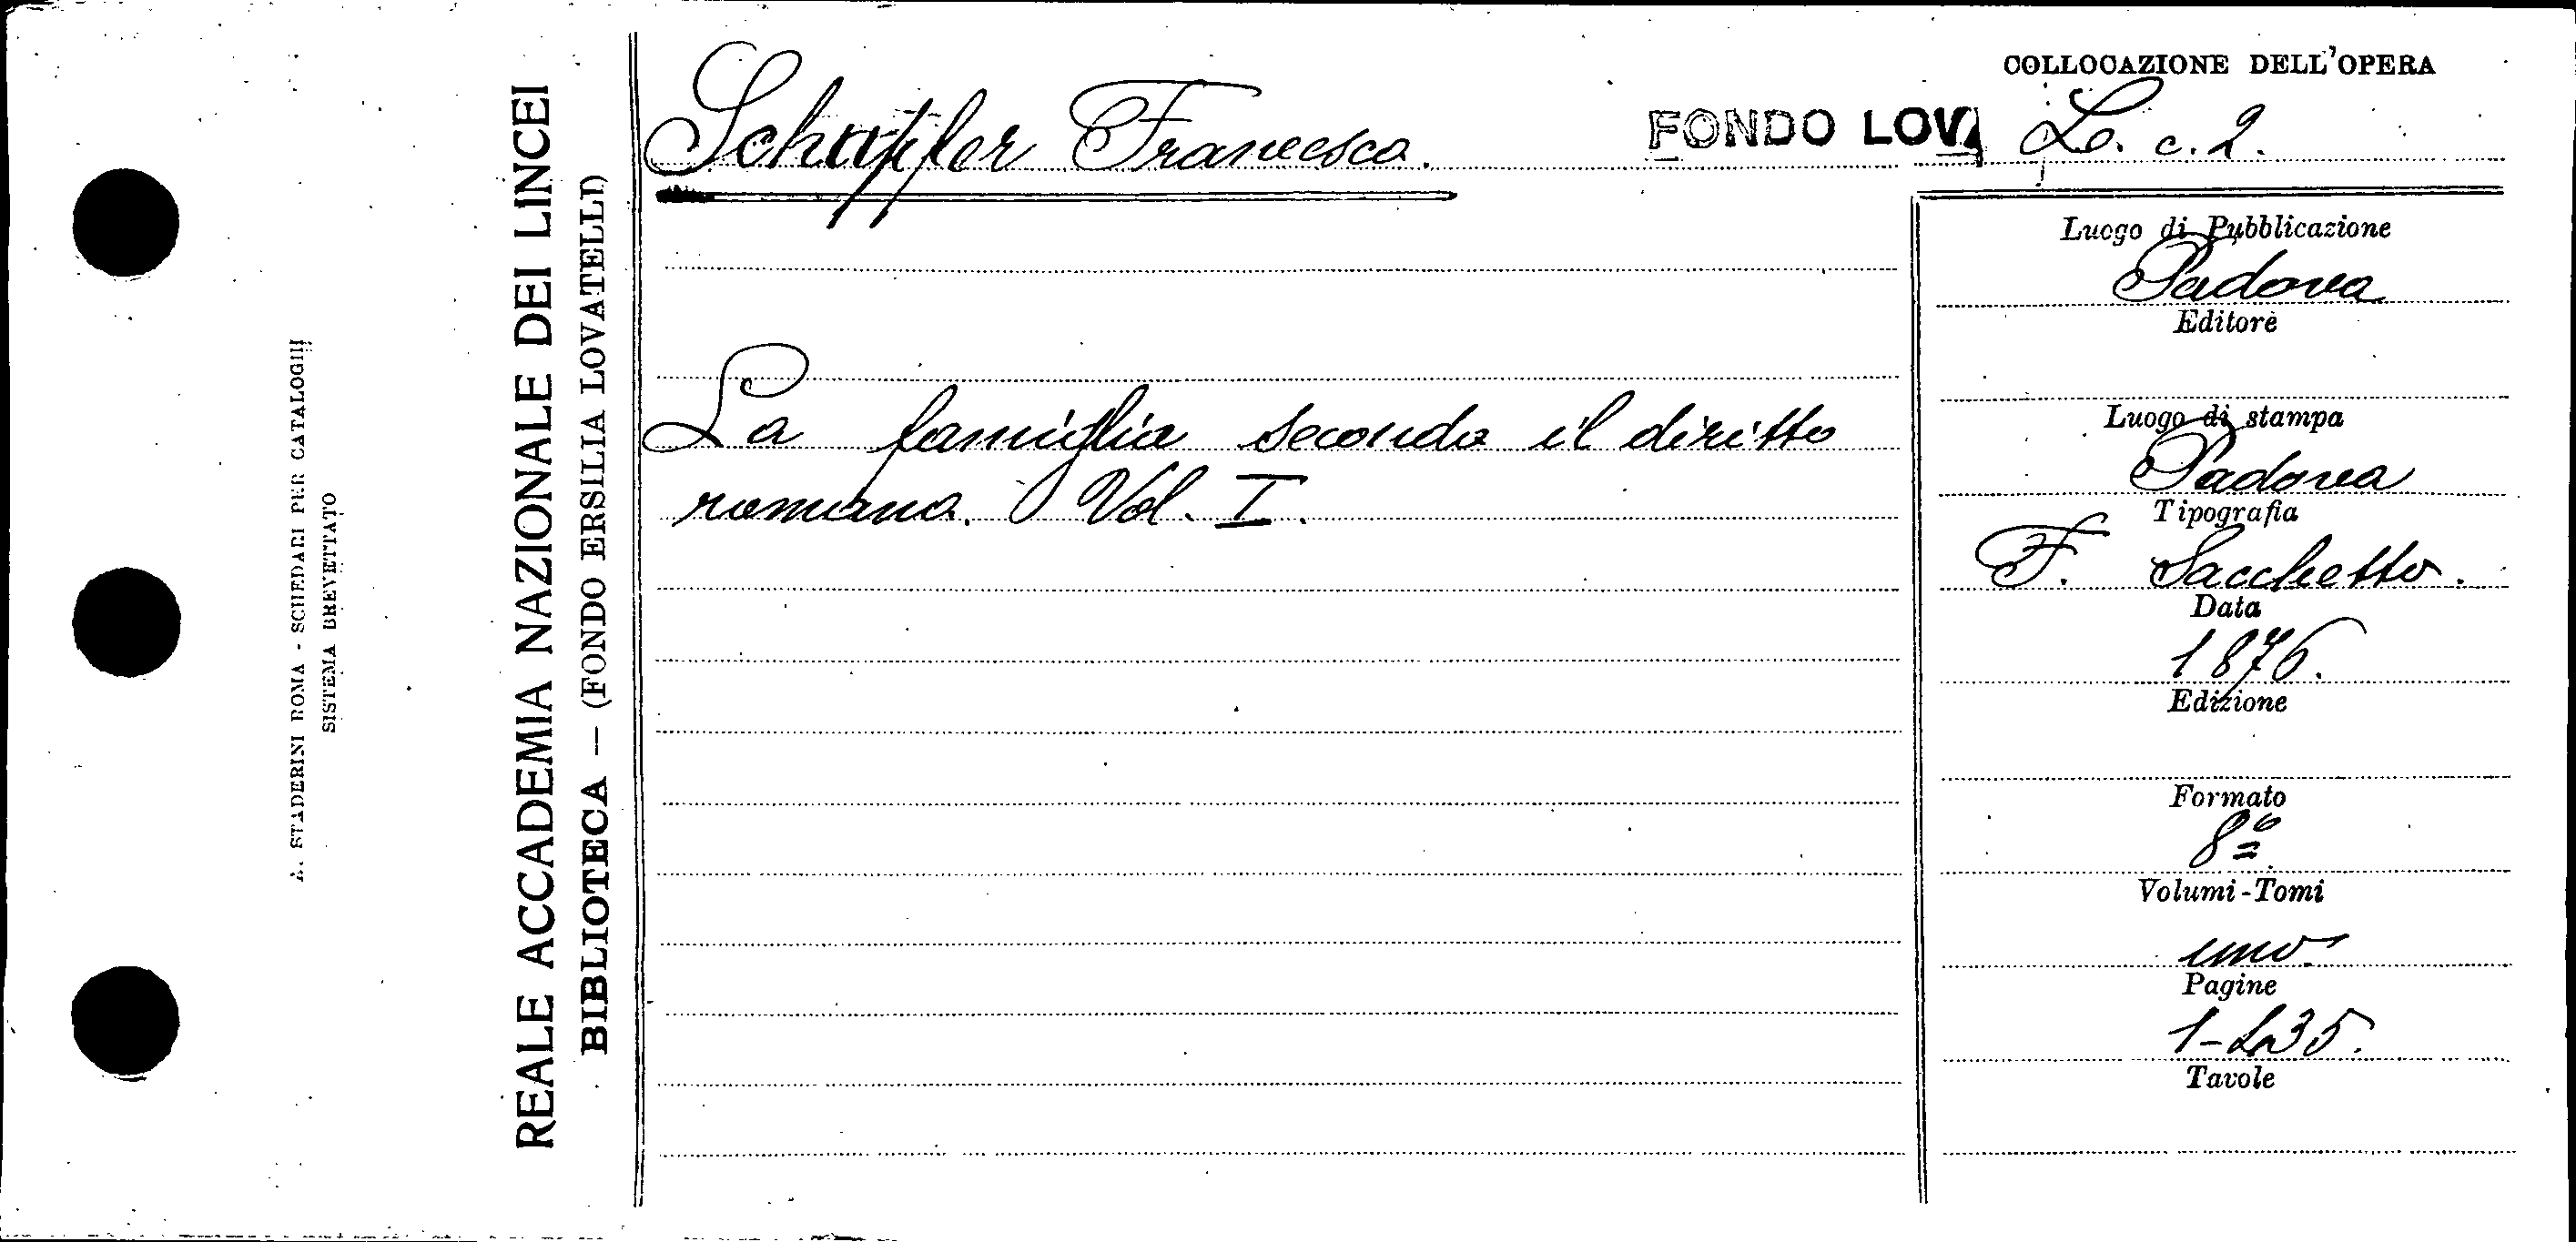 A. STADERINI ROMA - SCHEDARI PER CATALOGHI
SISTEMA BREVETTATO
REALE ACCADEMIA NAZIONALE DEI LINCEI
BIBLIOTECA — (FONDO ERSILIA LOVATELLI)
Schupfer Francesco.
FONDO LOV
COLLOCAZIONE DELL'OPERA
Lo. c. 2.
La famiglia secondo il diritto
romano. Vol. I.
Luogo di Pubblicazione
Padova
Editore
Luogo di stampa
Padova
Tipografia
F. Sacchetto.
Data
1876.
Edizione
Formato
8º
Volumi-Tomi
uno.
Pagine
Tavole